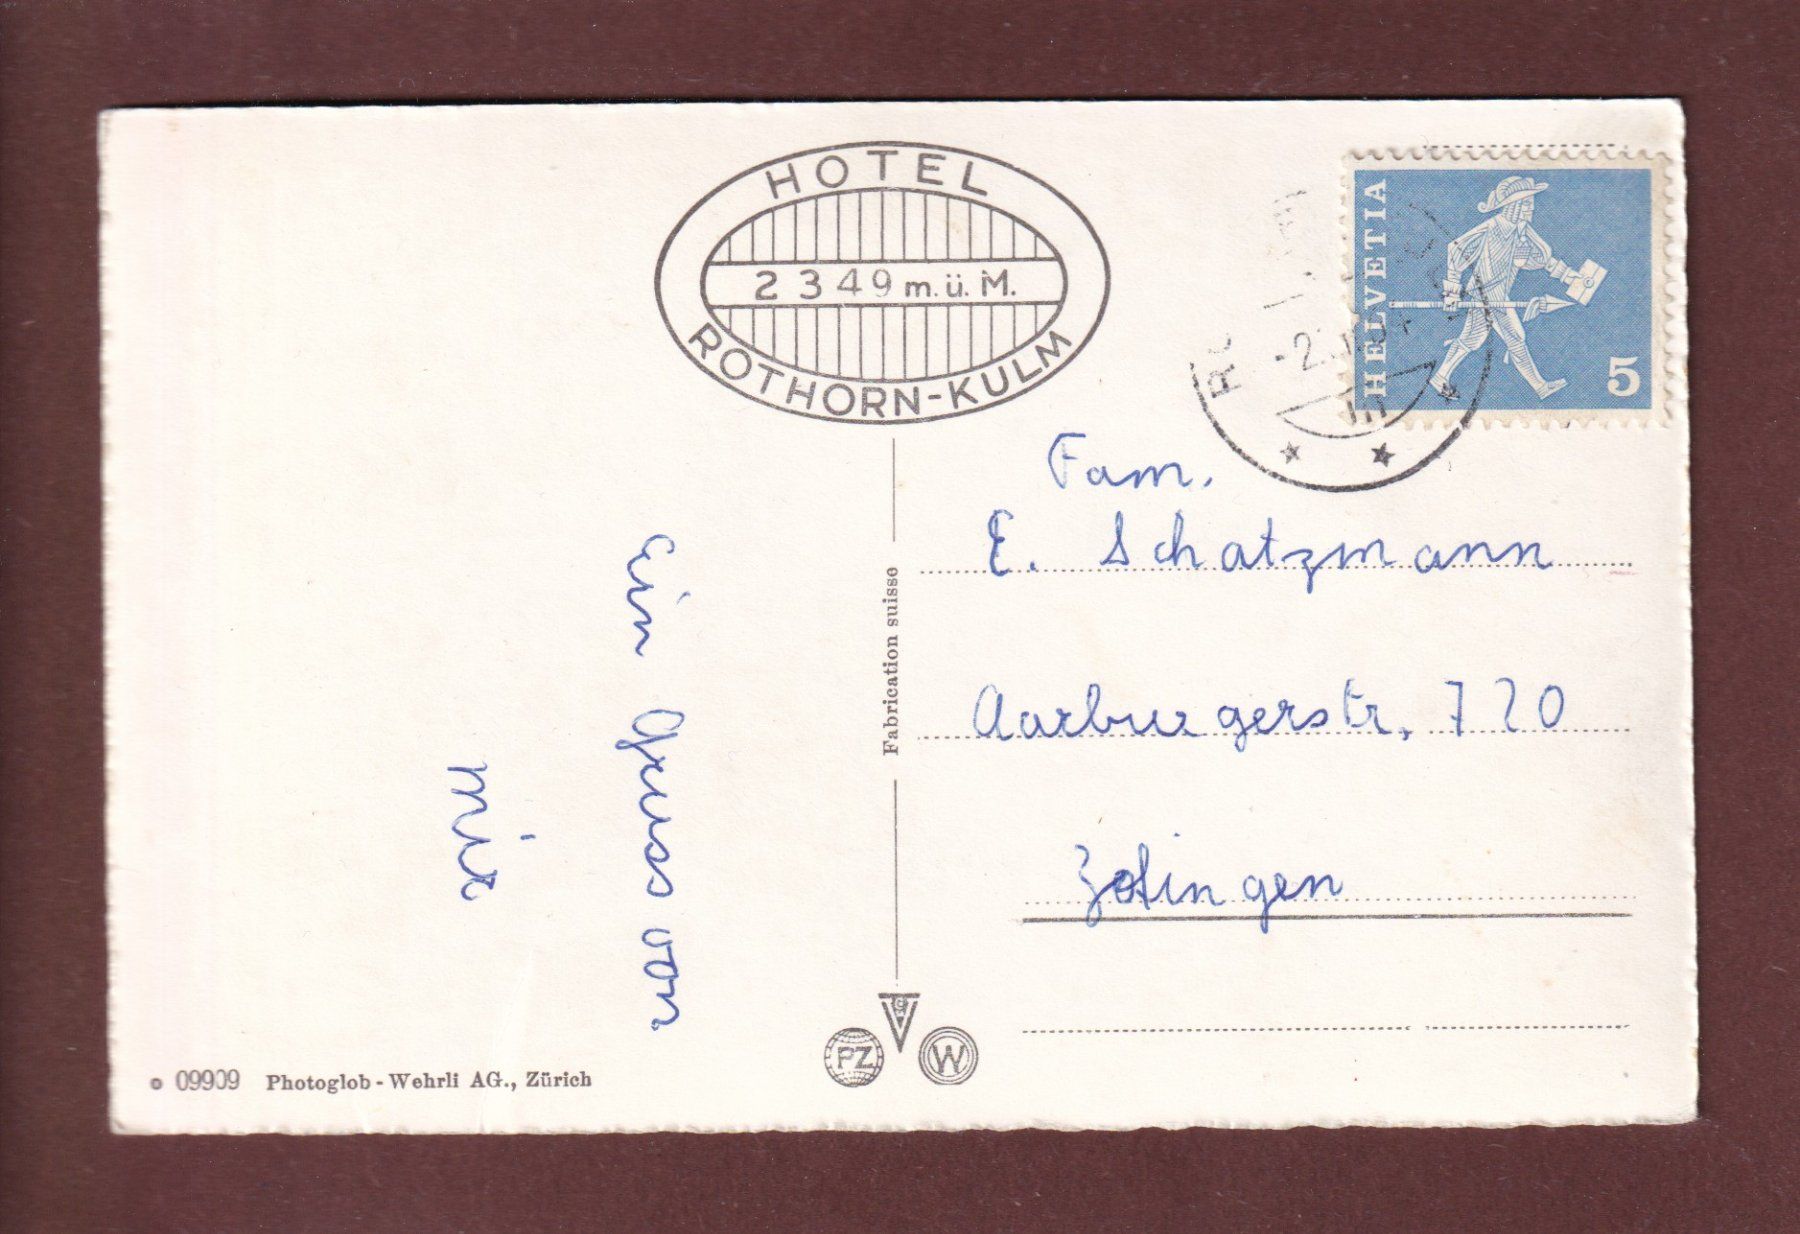 HOTEL
2349 m. ü. M.
ROTHORN-KULM
HELVETIA
5
Fam.
E. Schatzmann
Aarburgerstr. 720
Zofingen
Ein Gruss von
mir
Fabrication suisse
PZ
W
09909 Photoglob - Wehrli AG., Zürich